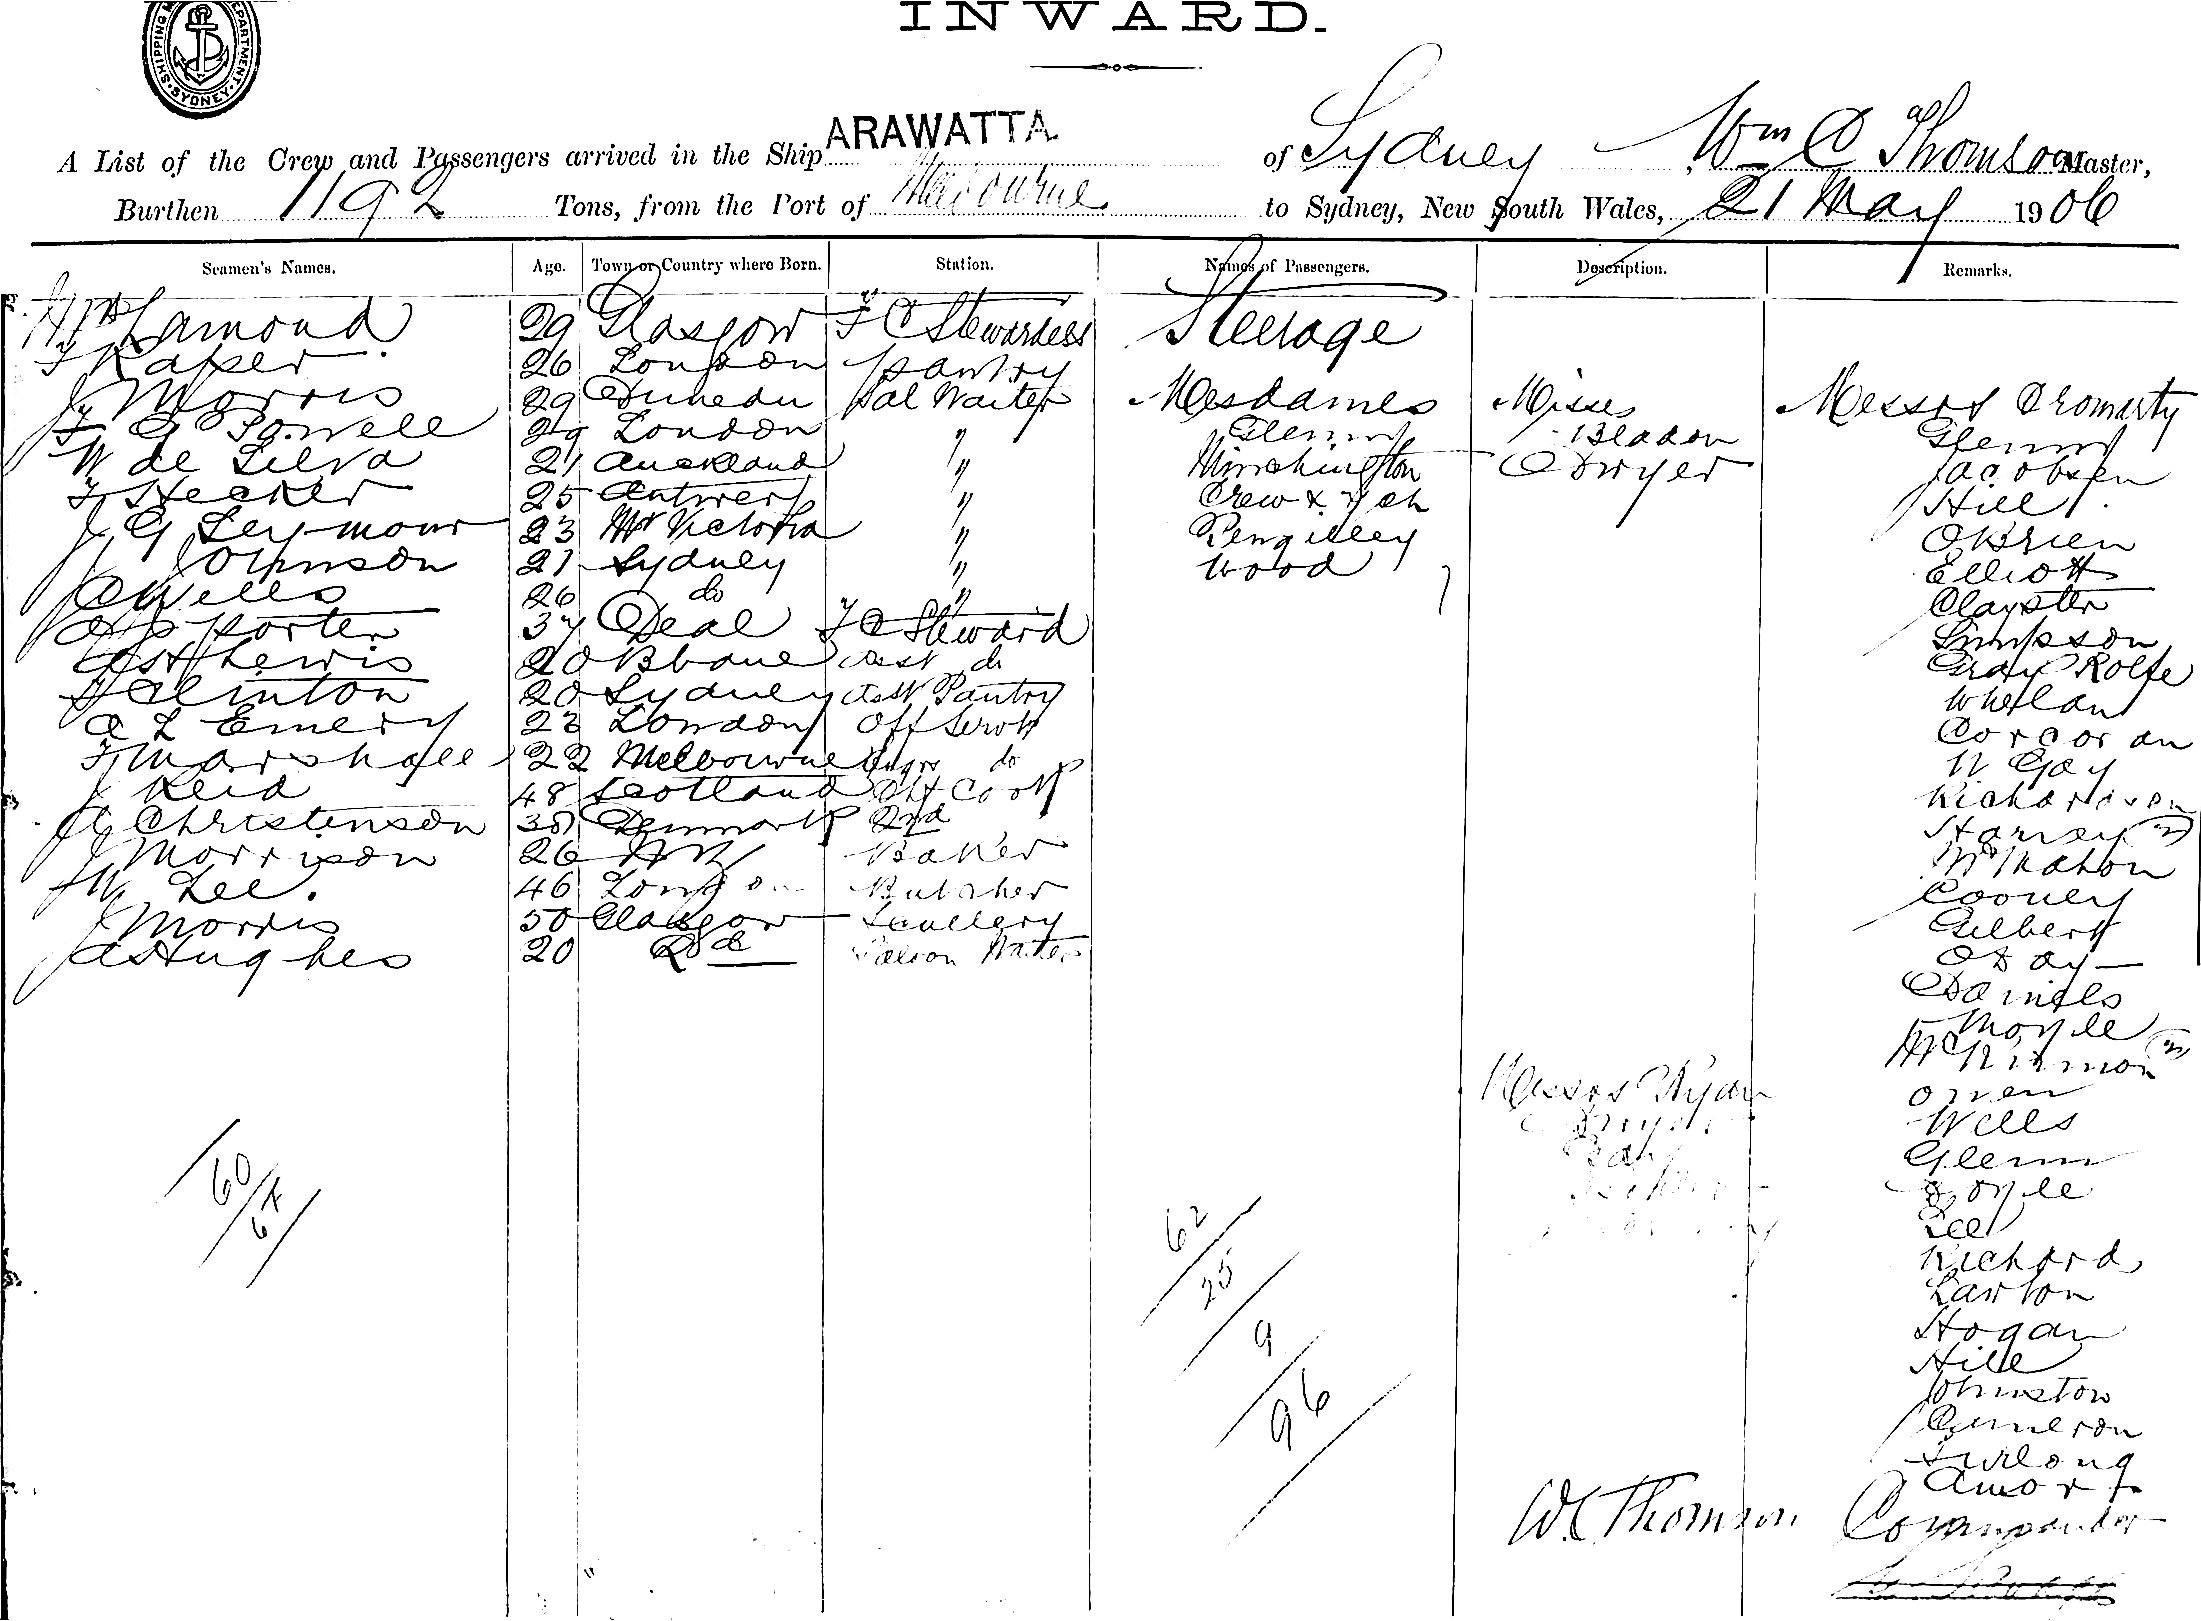 INWARD.
SHIPPING DEPARTMENT SYDNEY
A List of the Crew and Passengers arrived in the Ship ARAWATTA of Sydney Wm C Thomson Master,
Burthen 1192 Tons, from the Port of Melbourne to Sydney, New South Wales, 21 May 1906
Seamen's Names. Age. Town or Country where Born. Station. Names of Passengers. Description. Remarks.
Lamond 29 Glasgow F C Stewardess Steerage
F Raper 26 London Pantry
J Morris 29 Dunedin Sal Waiter Mesdames Misses Messrs Cromarty
F G Powell 29 London " Glenny Bladon Glenny
W de Silva 21 Auckland " O Dwyer Jacobsen
F Hecker 25 Antwerp " Crew & Ych Hill
J G Seymour 23 Mt Victoria " Pengilley OBrien
J Johnson 21 Sydney " Wood Elliott
Wells 26 do " Clayster
Porter 37 Deal F C Steward Simpson
Lewis 20 Bbane Asst do Gray Rolfe
F Clinton 20 Sydney Asst Pantry Whelan
A L Emery 23 London Off Servt Corcoran
F Marshall 22 Melbourne Engrs do W Gay
J Reid 48 Scotland Cht Cook Richardson
J C Christenson 38 Denmark 2nd Harvey (2)
J Morrison 26 NZ Baker McMahon
W Lee. 46 London Butcher Cooney
J Morris 50 Glasgow Scullery Gilbert
A Hughes 20 Saloon Waiter O Day
Daniels
Moyle
McKinnon (2)
Messrs Ryan Owen
Wells
Glenn
60 Doyle
64 Lee
62 Richard
25 Lawton
9 Hogan
96 Hill
Johnston
Cameron
Furlong
Amor
W C Thomson Commander